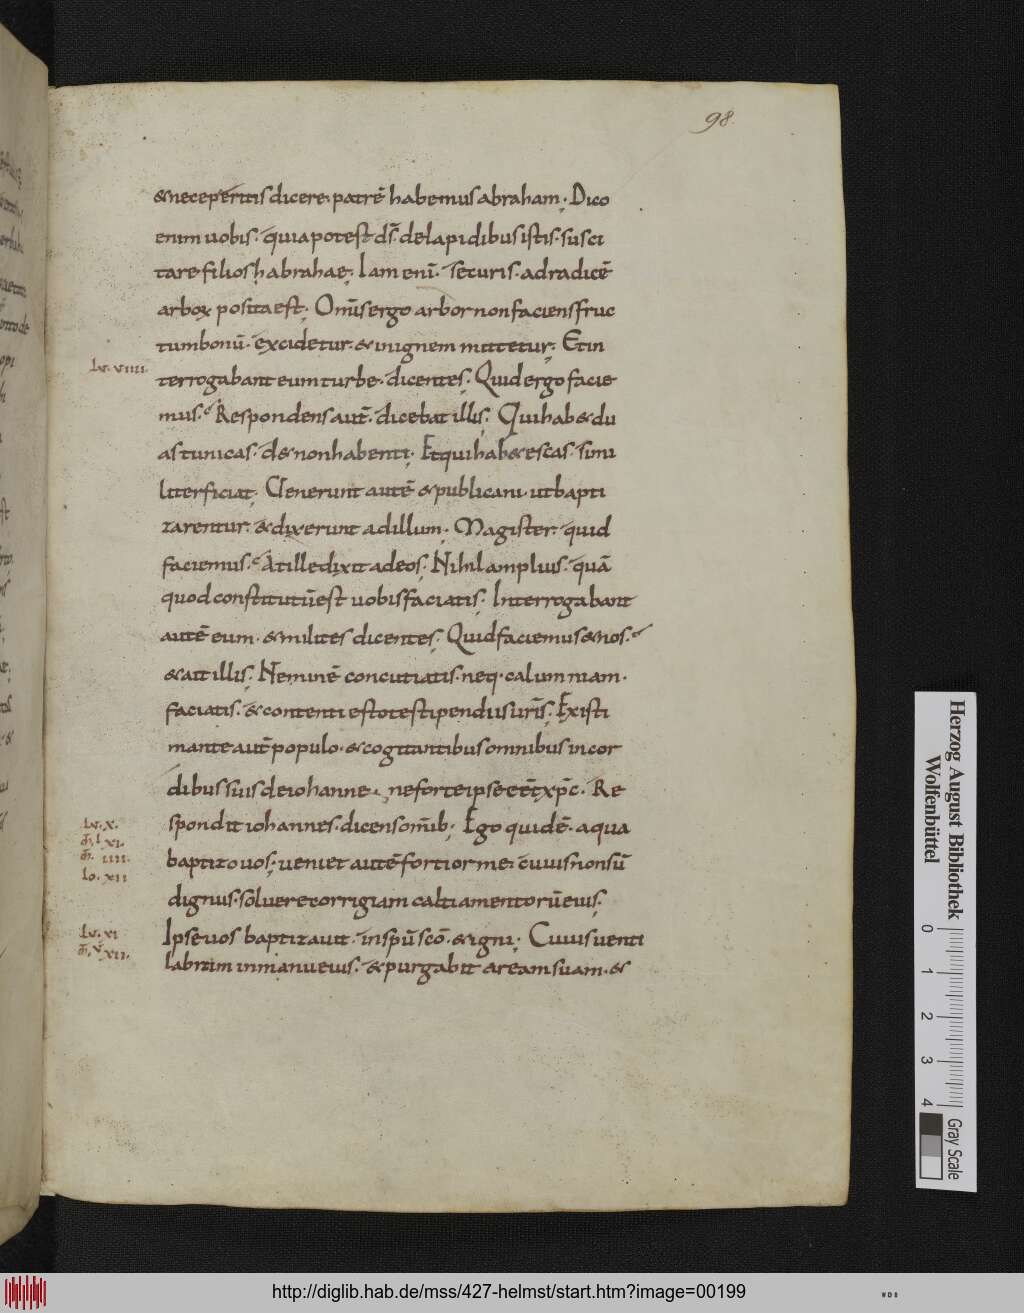 98.
& neceperitis dicere. patrē habemus abraham. Dico
enim uobis. quia potest d̄s. de lapidibus istis. susci
tare filios habrahae. Iam enī. securis. ad radicē
arboꝝ posita est. Om̄s ergo arbor non faciens fruc
tum bonū. excidetur. & in ignem mittetur. Et in
Lv. VIIII.
terrogabant eum turbe. dicentes. Quid ergo facie
mus. Respondens aut̄. dicebat illis. Qui hab& du
as tunicas. d& non habenti. Et qui hab& escas. simi
liter faciat. Uenerunt autē & publicani. ut bapti
zarentur. & dixerunt ad illum. Magister. quid
faciemus. At ille dixit ad eos. Nihil amplius. quā
quod constitutū est uobis faciatis. Interrogabant
autē eum. & milites dicentes. Quid faciemus & nos.
& ait illis. Neminē concutiatis. neq. calumniam.
faciatis. & contenti estote stipendiis ur̄is. Existi
mante aut̄ populo. & cogitantibus omnibus in cor
dibus suis de iohanne. ne forte ipse eēt xp̄c. Re
Lv. X.
spondit iohannes. dicens om̄ib. Ego quidē. aqua
m̄. XI.
m̄. IIII.
baptizo uos. ueniet autē fortior me. cuius non sū
Io. XII
dignus. soluere corrigiam caltiamentorū eius.
Lv. XI
Ipse uos baptizauit. in sp̄u sc̄o. & igni. Cuius uenti
m̄. v XII.
labrum in manu eius. & purgabit aream suam. &
Herzog August Bibliothek
Wolfenbüttel
0 1 2 3 4
Gray Scale
http://diglib.hab.de/mss/427-helmst/start.htm?image=00199
WDB